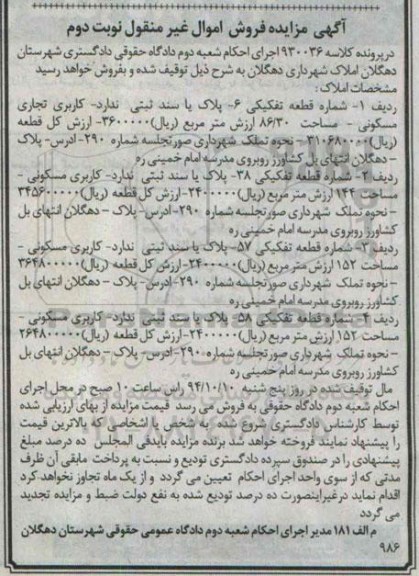 آگهی مزایده فروش اموال غیر منقول نوبت دوم
درپرونده کلاسه ۹۳۰۰۳۶ اجرای احکام شعبه دوم دادگاه حقوقی دادگستری شهرستان
دهگلان املاک شهرداری دهگلان به شرح ذیل توقیف شده و بفروش خواهد رسید
مشخصات املاک :
ردیف ۱- شماره قطعه تفکیکی ۶- پلاک یا سند ثبتی ندارد- کاربری تجاری
مسکونی - مساحت ۸۶/۳۰ ارزش متر مربع (ریال)۳۶۰۰۰۰۰- ارزش کل قطعه
(ریال)۳۱۰۶۸۰۰۰۰- نحوه تملک شهرداری صورتجلسه شماره ۲۹۰- ادرس- پلاک
- دهگلان انتهای بل کشاورز روبروی مدرسه امام خمینی ره
ردیف ۲- شماره قطعه تفکیکی ۳۸- پلاک یا سند ثبتی ندارد- کاربری مسکونی -
مساحت ۱۴۴ ارزش متر مربع (ریال)۲۴۰۰۰۰۰-ارزش کل قطعه (ریال)۳۴۵۶۰۰۰۰۰
- نحوه تملک شهرداری صورتجلسه شماره ۲۹۰- ادرس- پلاک - دهگلان انتهای بل
کشاورز روبروی مدرسه امام خمینی ره
ردیف ۳- شماره قطعه تفکیکی ۵۷- پلاک یا سند ثبتی ندارد- کاربری مسکونی -
مساحت ۱۵۲ ارزش متر مربع (ریال)۲۴۰۰۰۰۰-ارزش کل قطعه (ریال)۳۶۴۸۰۰۰۰۰
- نحوه تملک شهرداری صورتجلسه شماره ۲۹۰- ادرس- پلاک - دهگلان انتهای بل
کشاورز روبروی مدرسه امام خمینی ره
ردیف ۴- شماره قطعه تفکیکی ۵۸- پلاک یا سند ثبتی ندارد- کاربری مسکونی -
مساحت ۱۵۲ ارزش متر مربع (ریال)۲۴۰۰۰۰۰-ارزش کل قطعه (ریال)۲۶۴۸۰۰۰۰۰
- نحوه تملک شهرداری صورتجلسه شماره ۲۹۰- ادرس- پلاک - دهگلان انتهای بل
کشاورز روبروی مدرسه امام خمینی ره
مال توقیف شده در روز پنج شنبه ۹۴/۱۰/۱۰ راس ساعت ۱۰ صبح در محل اجرای
احکام شعبه دوم دادگاه حقوقی به فروش می رسد قیمت مزایده از بهای ارزیابی شده
توسط کارشناس دادگستری شروع شده به شخص یا اشخاصی که بالاترین قیمت
را پیشنهاد نمایند فروخته خواهد شد برنده مزایده بایدفی المجلس ده درصد مبلغ
پیشنهادی را در صندوق سپرده دادگستری تودیع و نسبت به پرداخت مابقی آن ظرف
مدتی که از سوی واحد اجرای احکام تعیین می گردد و از یک ماه تجاوز نخواهد کرد
اقدام نماید درغیراینصورت ده درصد تودیع شده به نفع دولت ضبط و مزایده تجدید
می گردد
م الف ۱۸۱ مدیر اجرای احکام شعبه دوم دادگاه عمومی حقوقی شهرستان دهگلان
۹۸۶